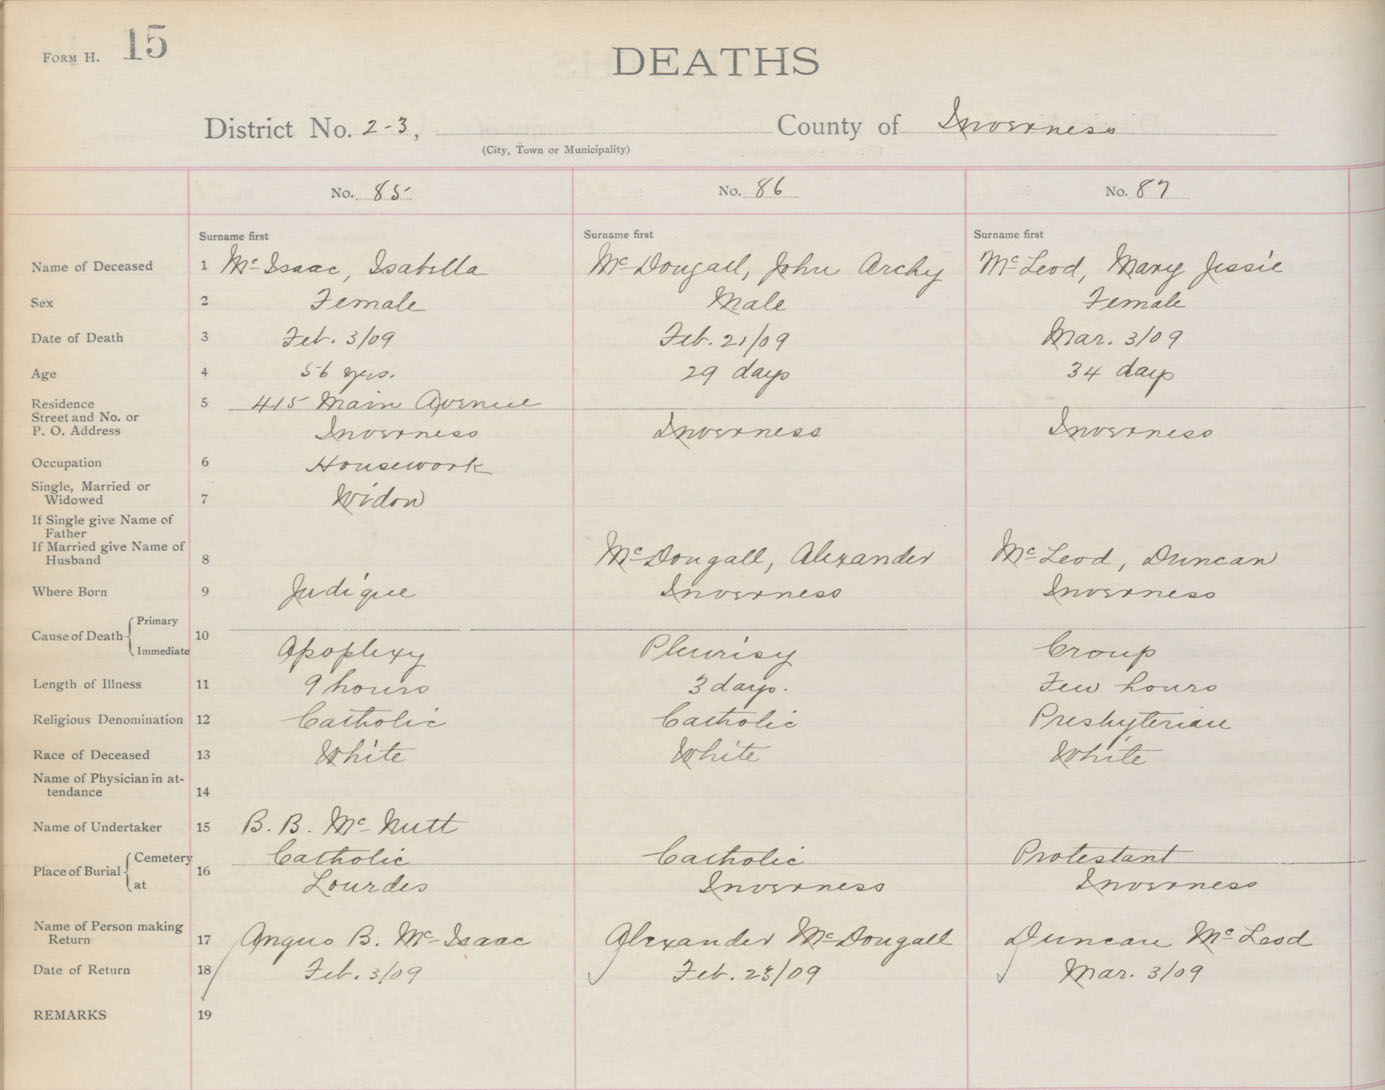 FORM H. 15
DEATHS
District No. 2-3, County of Inverness
(City, Town or Municipality)
No. 85 No. 86 No. 87
Surname first Surname first Surname first
Name of Deceased 1 McIsaac, Isabella McDougall, John Archy McLeod, Mary Jessie
Sex 2 Female Male Female
Date of Death 3 Feb. 3/09 Feb. 21/09 Mar. 3/09
Age 4 56 yrs. 29 days 34 days
Residence 5 415 Main Avenue
Street and No. or
P. O. Address Inverness Inverness Inverness
Occupation 6 Housework
Single, Married or
Widowed 7 Widow
If Single give Name of
Father
If Married give Name of
Husband 8 McDougall, Alexander McLeod, Duncan
Where Born 9 Judique Inverness Inverness
Primary
Cause of Death 10
Immediate Apoplexy Pleurisy Croup
Length of Illness 11 9 hours 3 days. Few hours
Religious Denomination 12 Catholic Catholic Presbyterian
Race of Deceased 13 White White White
Name of Physician in at-
tendance 14
Name of Undertaker 15 B. B. McNutt
Cemetery Catholic Catholic Protestant
Place of Burial 16
at Lourdes Inverness Inverness
Name of Person making
Return 17 Angus B. McIsaac Alexander McDougall Duncan McLeod
Date of Return 18 Feb. 3/09 Feb. 23/09 Mar. 3/09
REMARKS 19